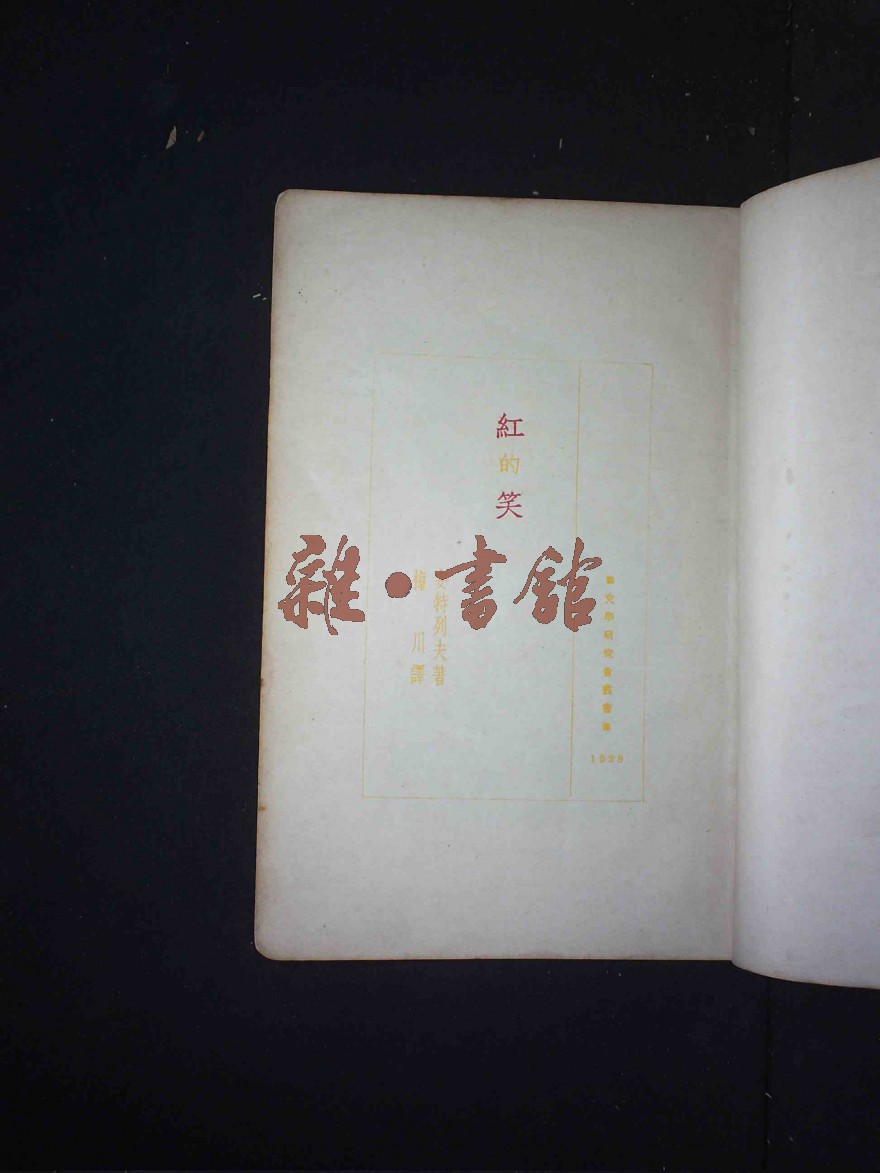 文學研究會叢書
1929
紅的笑
安特列夫著
梅川譯
雜·書館